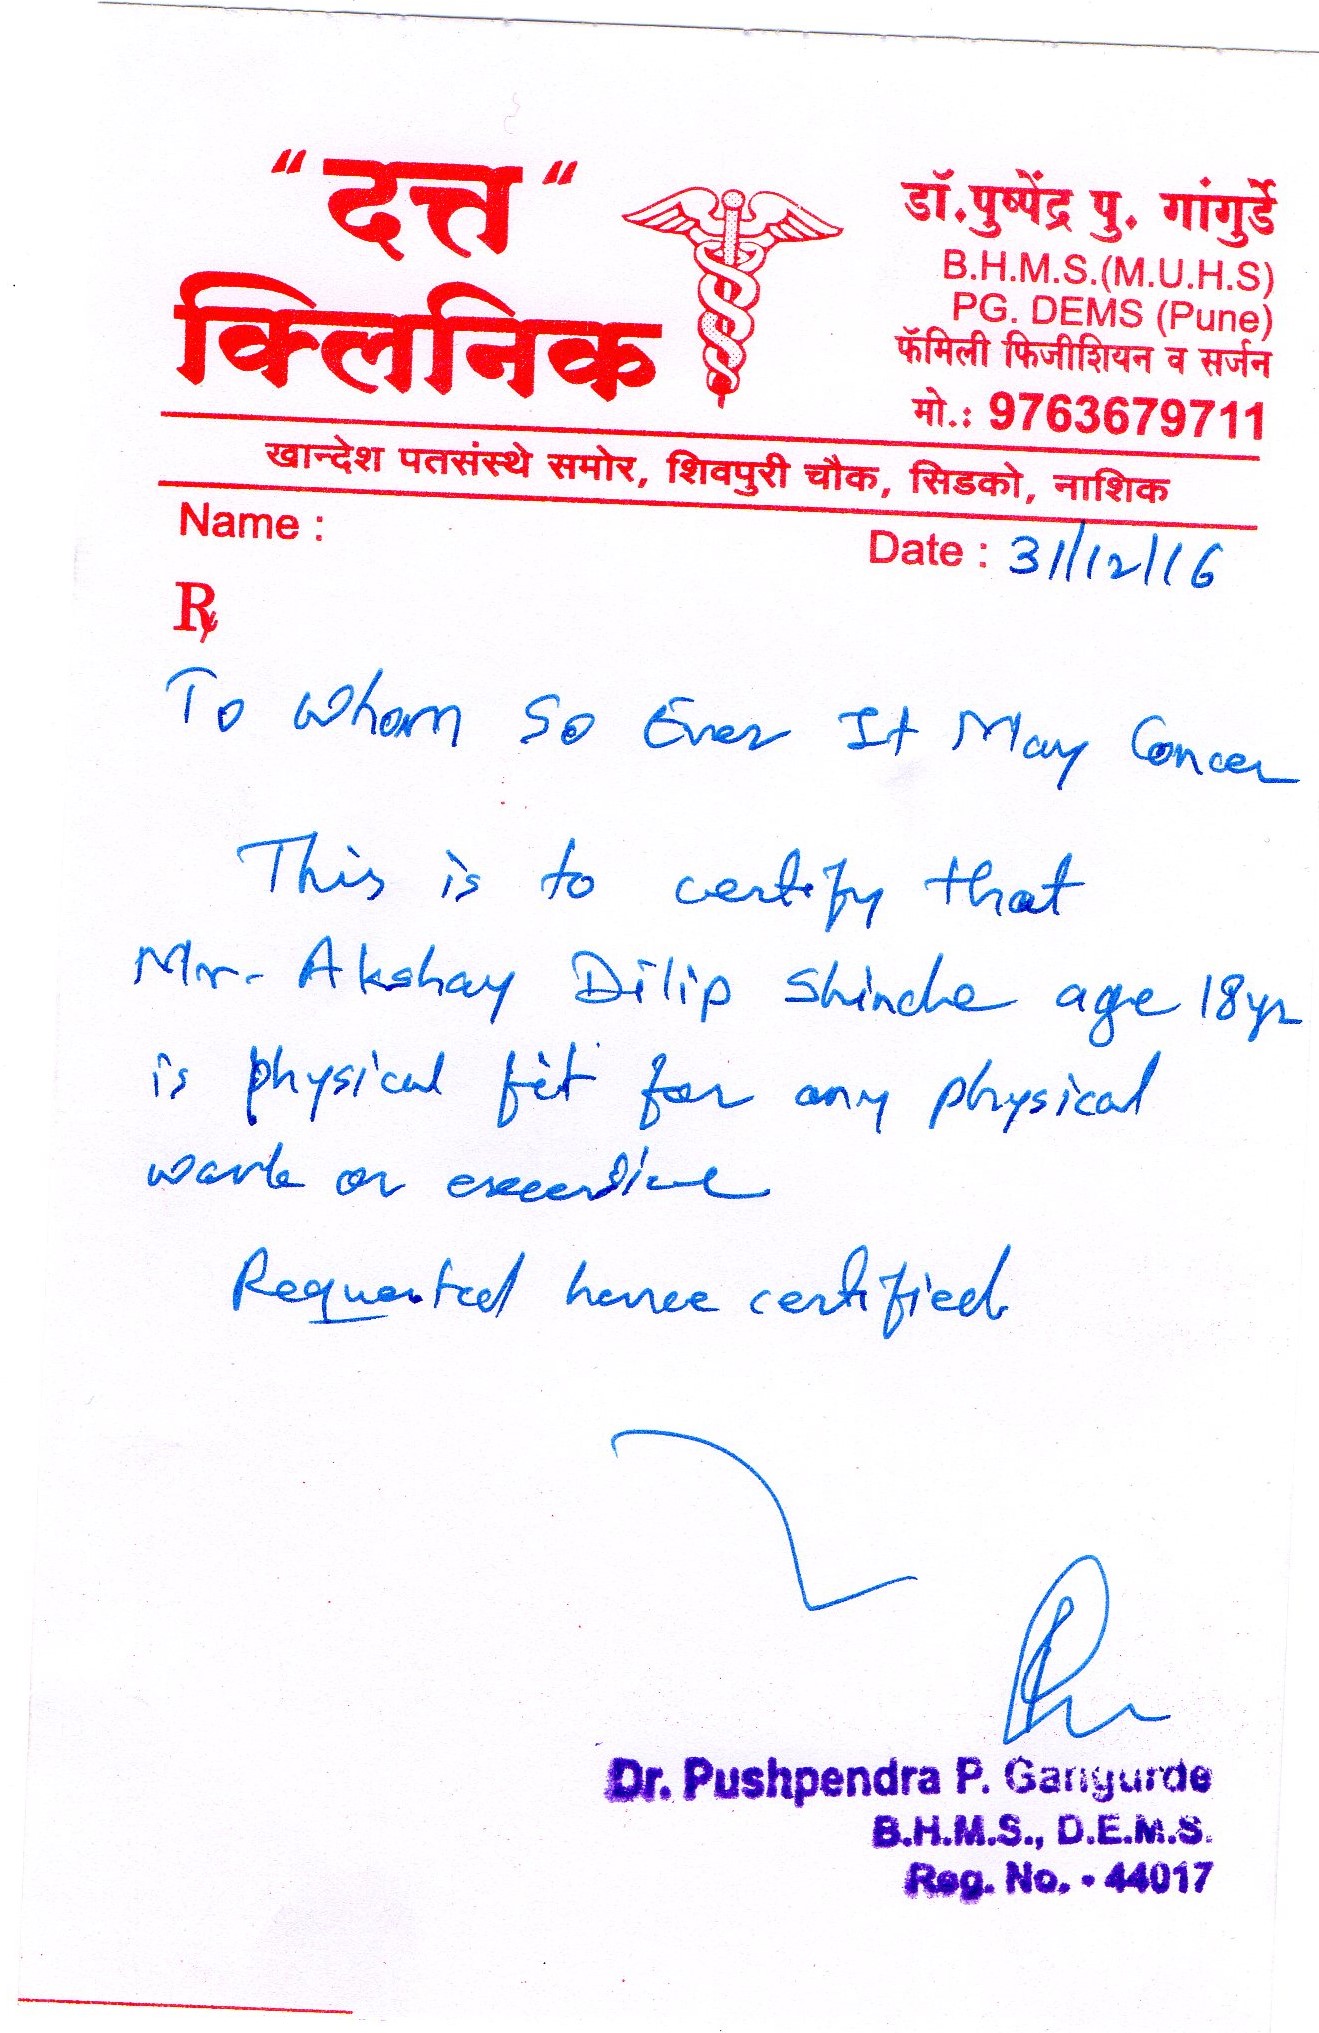 "दत्त"
क्लिनिक
डॉ.पुष्पेंद्र पु. गांगुर्डे
B.H.M.S.(M.U.H.S)
PG. DEMS (Pune)
फॅमिली फिजीशियन व सर्जन
मो.: 9763679711
खान्देश पतसंस्थे समोर, शिवपुरी चौक, सिडको, नाशिक
Name :
Date : 31/12/16
Rx
To Whom So Ever It May Concer
This is to certify that
Mr. Akshay Dilip Shinde age 18yr
is physical fit for any physical
work or
Requested hence certified
Dr. Pushpendra P. Gangurde
B.H.M.S., D.E.M.S.
Reg. No. - 44017